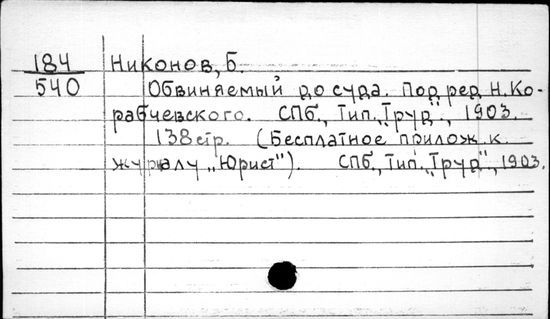 184 Никонов, Б.
540 Обвиняемый до суда. Под ред Н. Ко-
рабчевского. СПб., Тип. „Труд", 1903.
138 стр. (Бесплатное прилож. к.
журналу „Юрист"). СПб., Тип. „Труд", 1903.